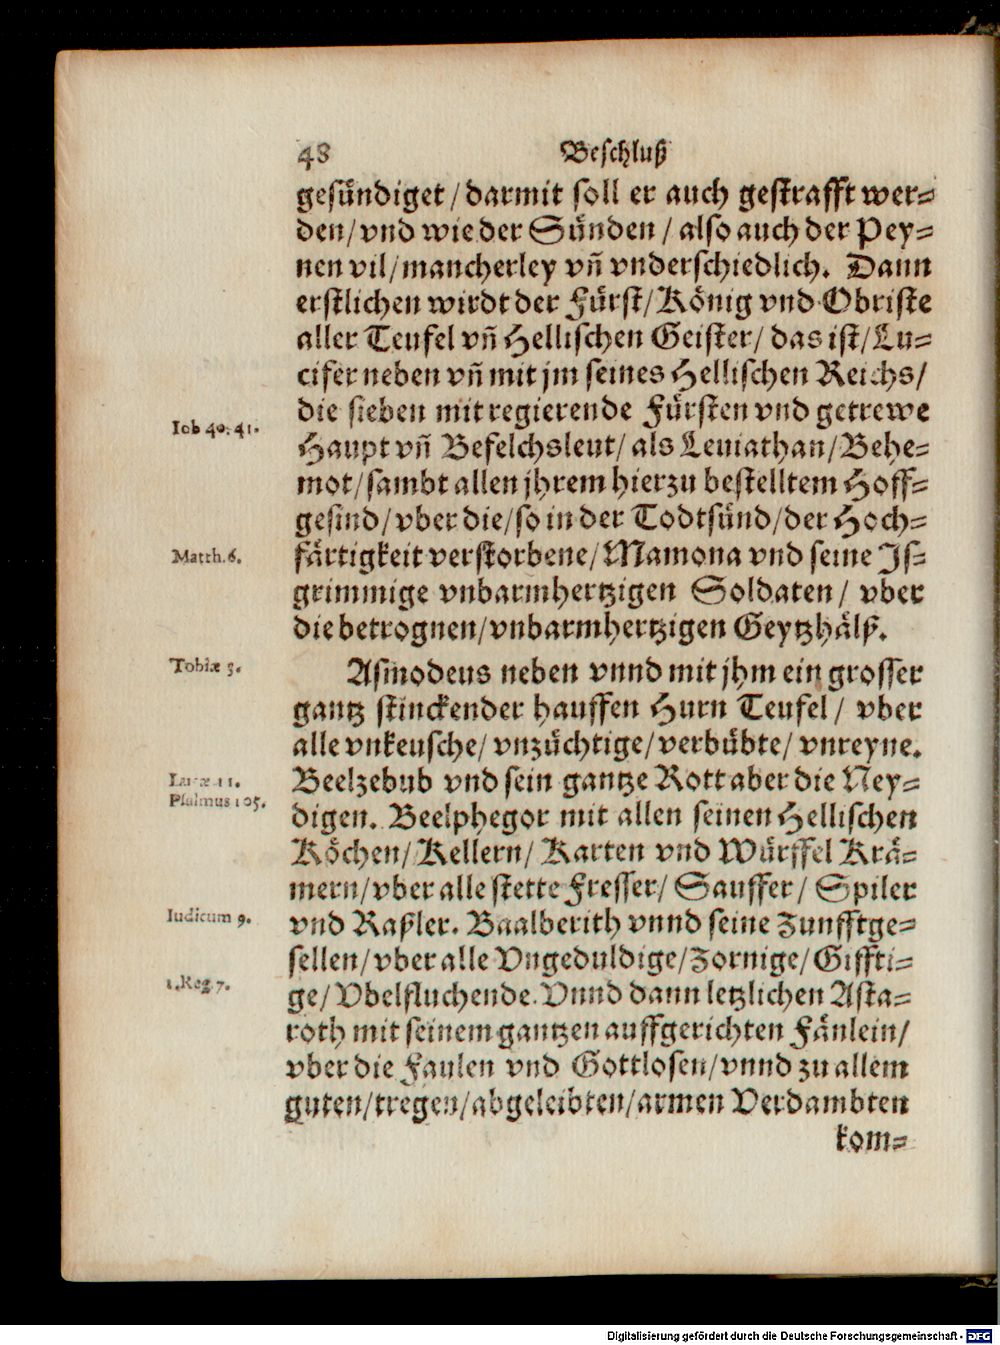 48 Beschluß
gesündiget / darmit soll er auch gestrafft wer⸗
den / vnd wie der Sünden / also auch der Pey⸗
nen vil / mancherley vñ vnderschiedlich. Dann
erstlichen wirdt der Fürst / König vnd Obriste
aller Teufel vñ Hellischen Geister / das ist / Lu⸗
cifer neben vñ mit jm seines Hellischen Reichs /
die sieben mit regierende Fürsten vnd getrewe
Iob 40. 41.
Haupt vñ Befelchsleut / als Leuiathan / Behe⸗
mot / sambt allen jhrem hierzu bestelltem Hoff⸗
gesind / vber die / so in der Todtsünd / der Hoch⸗
Matth. 6.
färtigkeit verstorbene / Mamona vnd seine Js⸗
grimmige vnbarmhertzigen Soldaten / vber
die betrognen / vnbarmhertzigen Geytzhälß.
Tobiæ 3.
Asmodeus neben vnnd mit jhm ein grosser
gantz stinckender hauffen Hurn Teufel / vber
alle vnkeusche / vnzüchtige / verbübte / vnreyne.
Lucæ 11.
Beelzebub vnd sein gantze Rott aber die Ney⸗
Psalmus 105.
digen. Beelphegor mit allen seinen Hellischen
Köchen / Kellern / Karten vnd Würffel Krä⸗
mern / vber alle stette Fresser / Sauffer / Spiler
Iudicum 9.
vnd Raßler. Baalberith vnnd seine Zunfftge⸗
sellen / vber alle Vngeduldige / Zornige / Giffti⸗
1. Reg 7.
ge / Vbelfluchende. Vnnd dann letzlichen Asta⸗
roth mit seinem gantzen auffgerichten Fänlein /
vber die Faulen vnd Gottlosen / vnnd zu allem
guten / tregen / abgeleibten / armen Verdambten
kom⸗
Digitalisierung gefördert durch die Deutsche Forschungsgemeinschaft - DFG